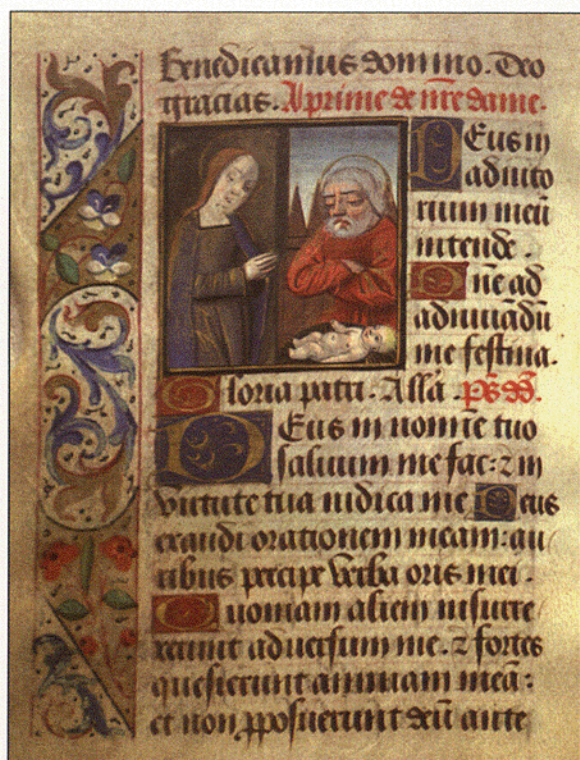 Benedicamus domino. Deo
gracias. A prime de nr̄e dame.
DEus in
adiuto
rium meū
intende.
Dn̄e ad
adiuuādū
me festina.
Gloria patri. Alla. ps̄ dd̄.
DEus in nomīe tuo
saluum me fac: ⁊ in
virtute tua iudica me Deus
exaudi orationem meam: au
ribus percipe verba oris mei.
Quoniam alieni insurre
xerunt aduersum me. ⁊ fortes
quesierunt animam meā:
et non ꝓposuerunt deū ante